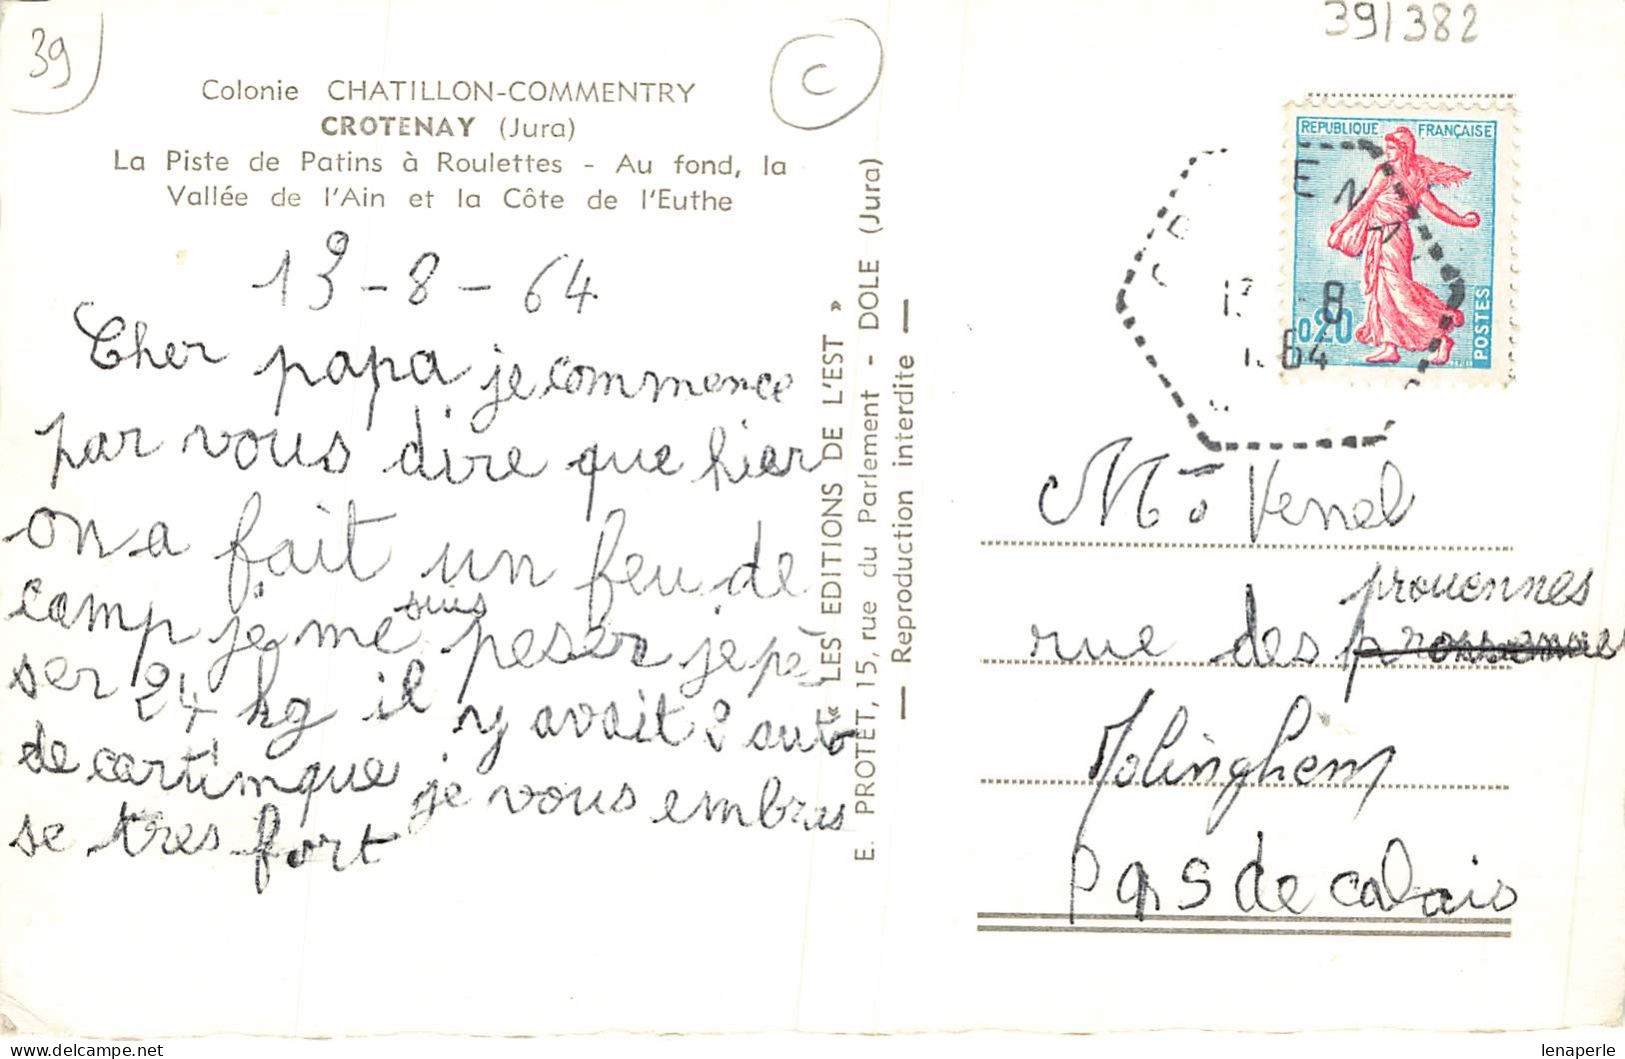 39
C
39/382
Colonie CHATILLON-COMMENTRY
CROTENAY (Jura)
La Piste de Patins à Roulettes - Au fond, la
Vallée de l'Ain et la Côte de l'Euthe
13-8-64
Cher papa je commence
par vous dire que hier
on a fait un feu de
camp je me suis peser je pè
ser 24 kg il y avait 2 auto
de cartimque je vous embras
se tres fort
« LES EDITIONS DE L'EST »
E. PROTET, 15, rue du Parlement - DOLE (Jura)
— Reproduction interdite —
REPUBLIQUE FRANÇAISE
0,20
POSTES
ENA
8
64
Mr Venel
prouennes
rue des
Molinghem
Pas de calais
lenaperle